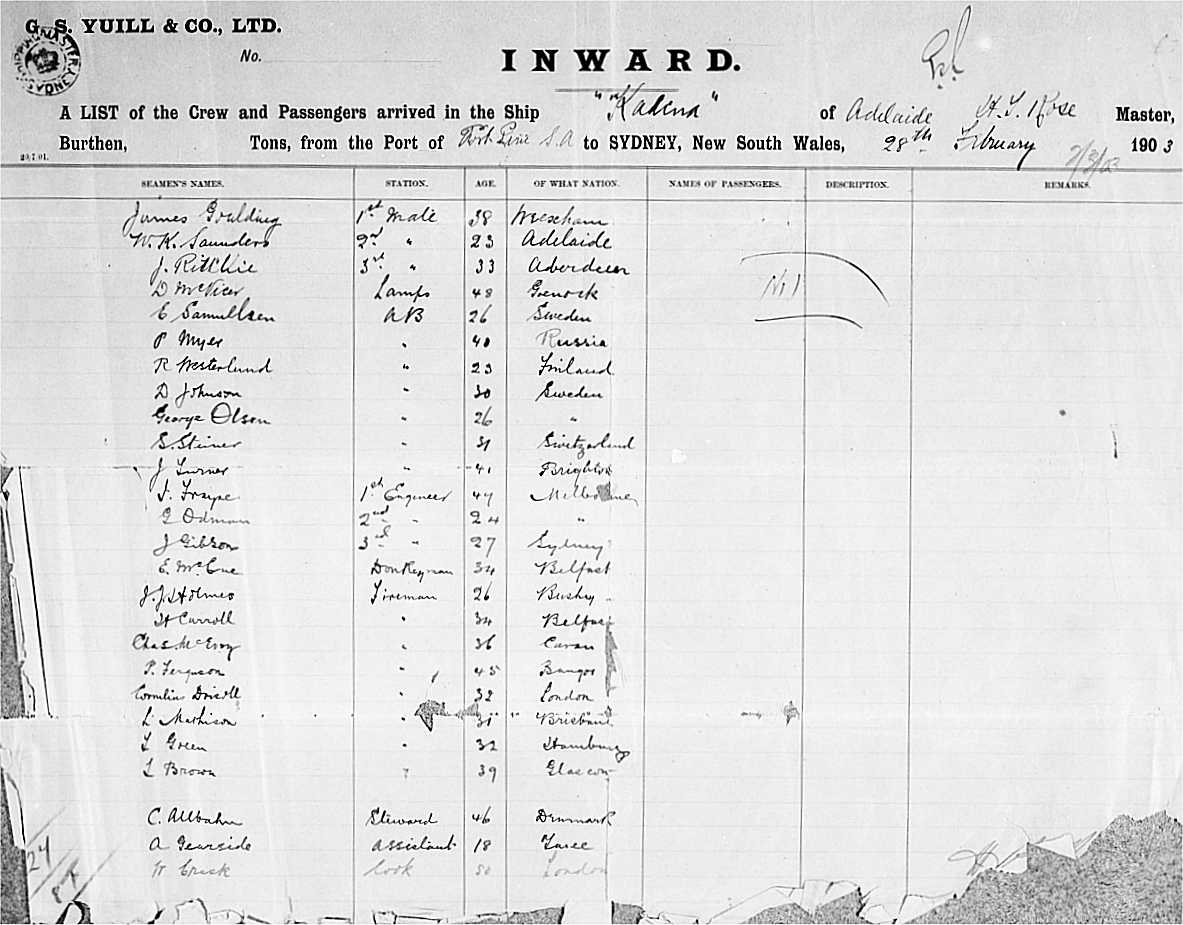 G. S. YUILL & CO., LTD.
SHIPPING MASTER SYDNEY
No.
INWARD.
A LIST of the Crew and Passengers arrived in the Ship "Kadena" of Adelaide H. T. Rose Master,
Burthen, Tons, from the Port of Port Pirie S.A to SYDNEY, New South Wales, 28th February 1903
29.7.01.
2/3/03
SEAMEN'S NAMES. STATION. AGE. OF WHAT NATION. NAMES OF PASSENGERS. DESCRIPTION. REMARKS.
James Goulding 1st Mate 38
W. K. Saunders 2nd " 23 Adelaide
J. Ritchie 3rd " 33 Aberdeen
D McVicer Lamps 48 Grenock
Nil
E Samuelsen AB 26 Sweden
P Myer " 40 Russia
R Westerlund " 23 Finland
D Johnson " 30 Sweden
George Olsen " 26 "
S. Steiner " 31 Switzerland
J Turner " 41 Brighton
J. Fraipe 1st Engineer 47 Melbourne
G Odman 2nd " 24 "
J Gibson 3rd " 27 Sydney
E. McCue Donkeyman 34 Belfast
J. J. Holmes Fireman 26 Bushy
H Carroll " 34 Belfast
Chas McEvoy " 36 Cavan
P. Ferguson " 45 Bangor
Cornelius Driscoll " 32 London
L. Mathison " 31 Brisbane
L Green " 32 Hamburg
L Brown " 39 Glascow
C. Allbahn Steward 46 Denmark
A Gearside Assistant 18 Taree
W Crick Cook 50 London
24